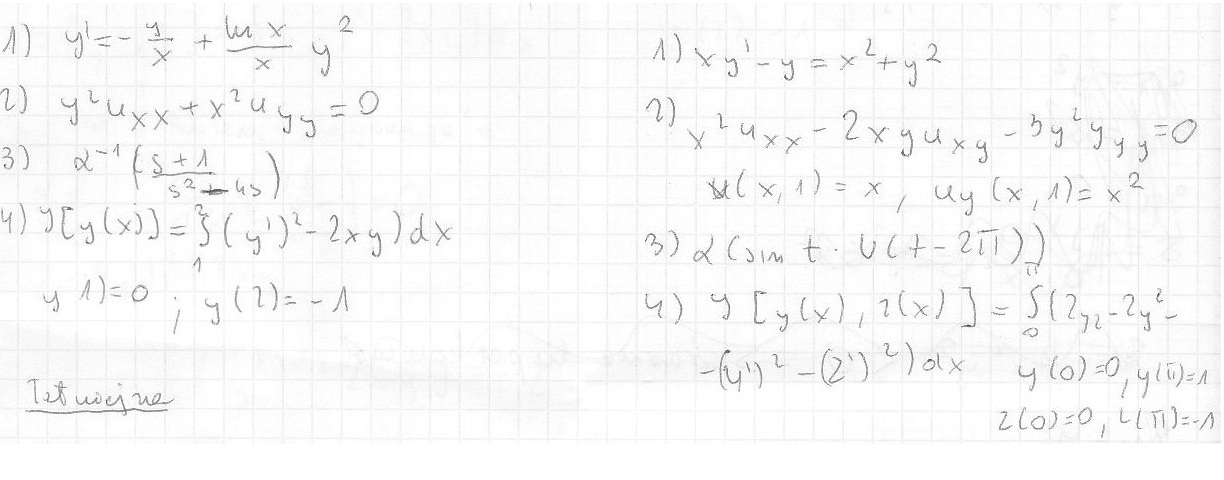 1) y' = - y/x + ln x/x y²
2) y² u_xx + x² u_yy = 0
3) ℒ⁻¹ ( s + 1 / s² - 4s )
4) J[y(x)] = ∫₁² (y')² - 2xy) dx
y 1) = 0 ; y(2) = -1
1) x y' - y = x² + y²
2) x² u_xx - 2xy u_xy - 3y² y_yy = 0
u(x, 1) = x , u_y (x, 1) = x²
3) ℒ (sin t · U(t - 2π))
4) J [y(x), z(x)] = ∫₀^π (2yz - 2y² -
- (y')² - (z')²) dx y(0) = 0, y(π) = 1
z(0) = 0, z(π) = -1